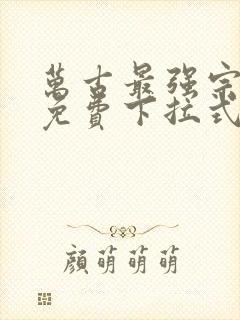 萬古最强宗
免費下拉式
顏萌萌萌